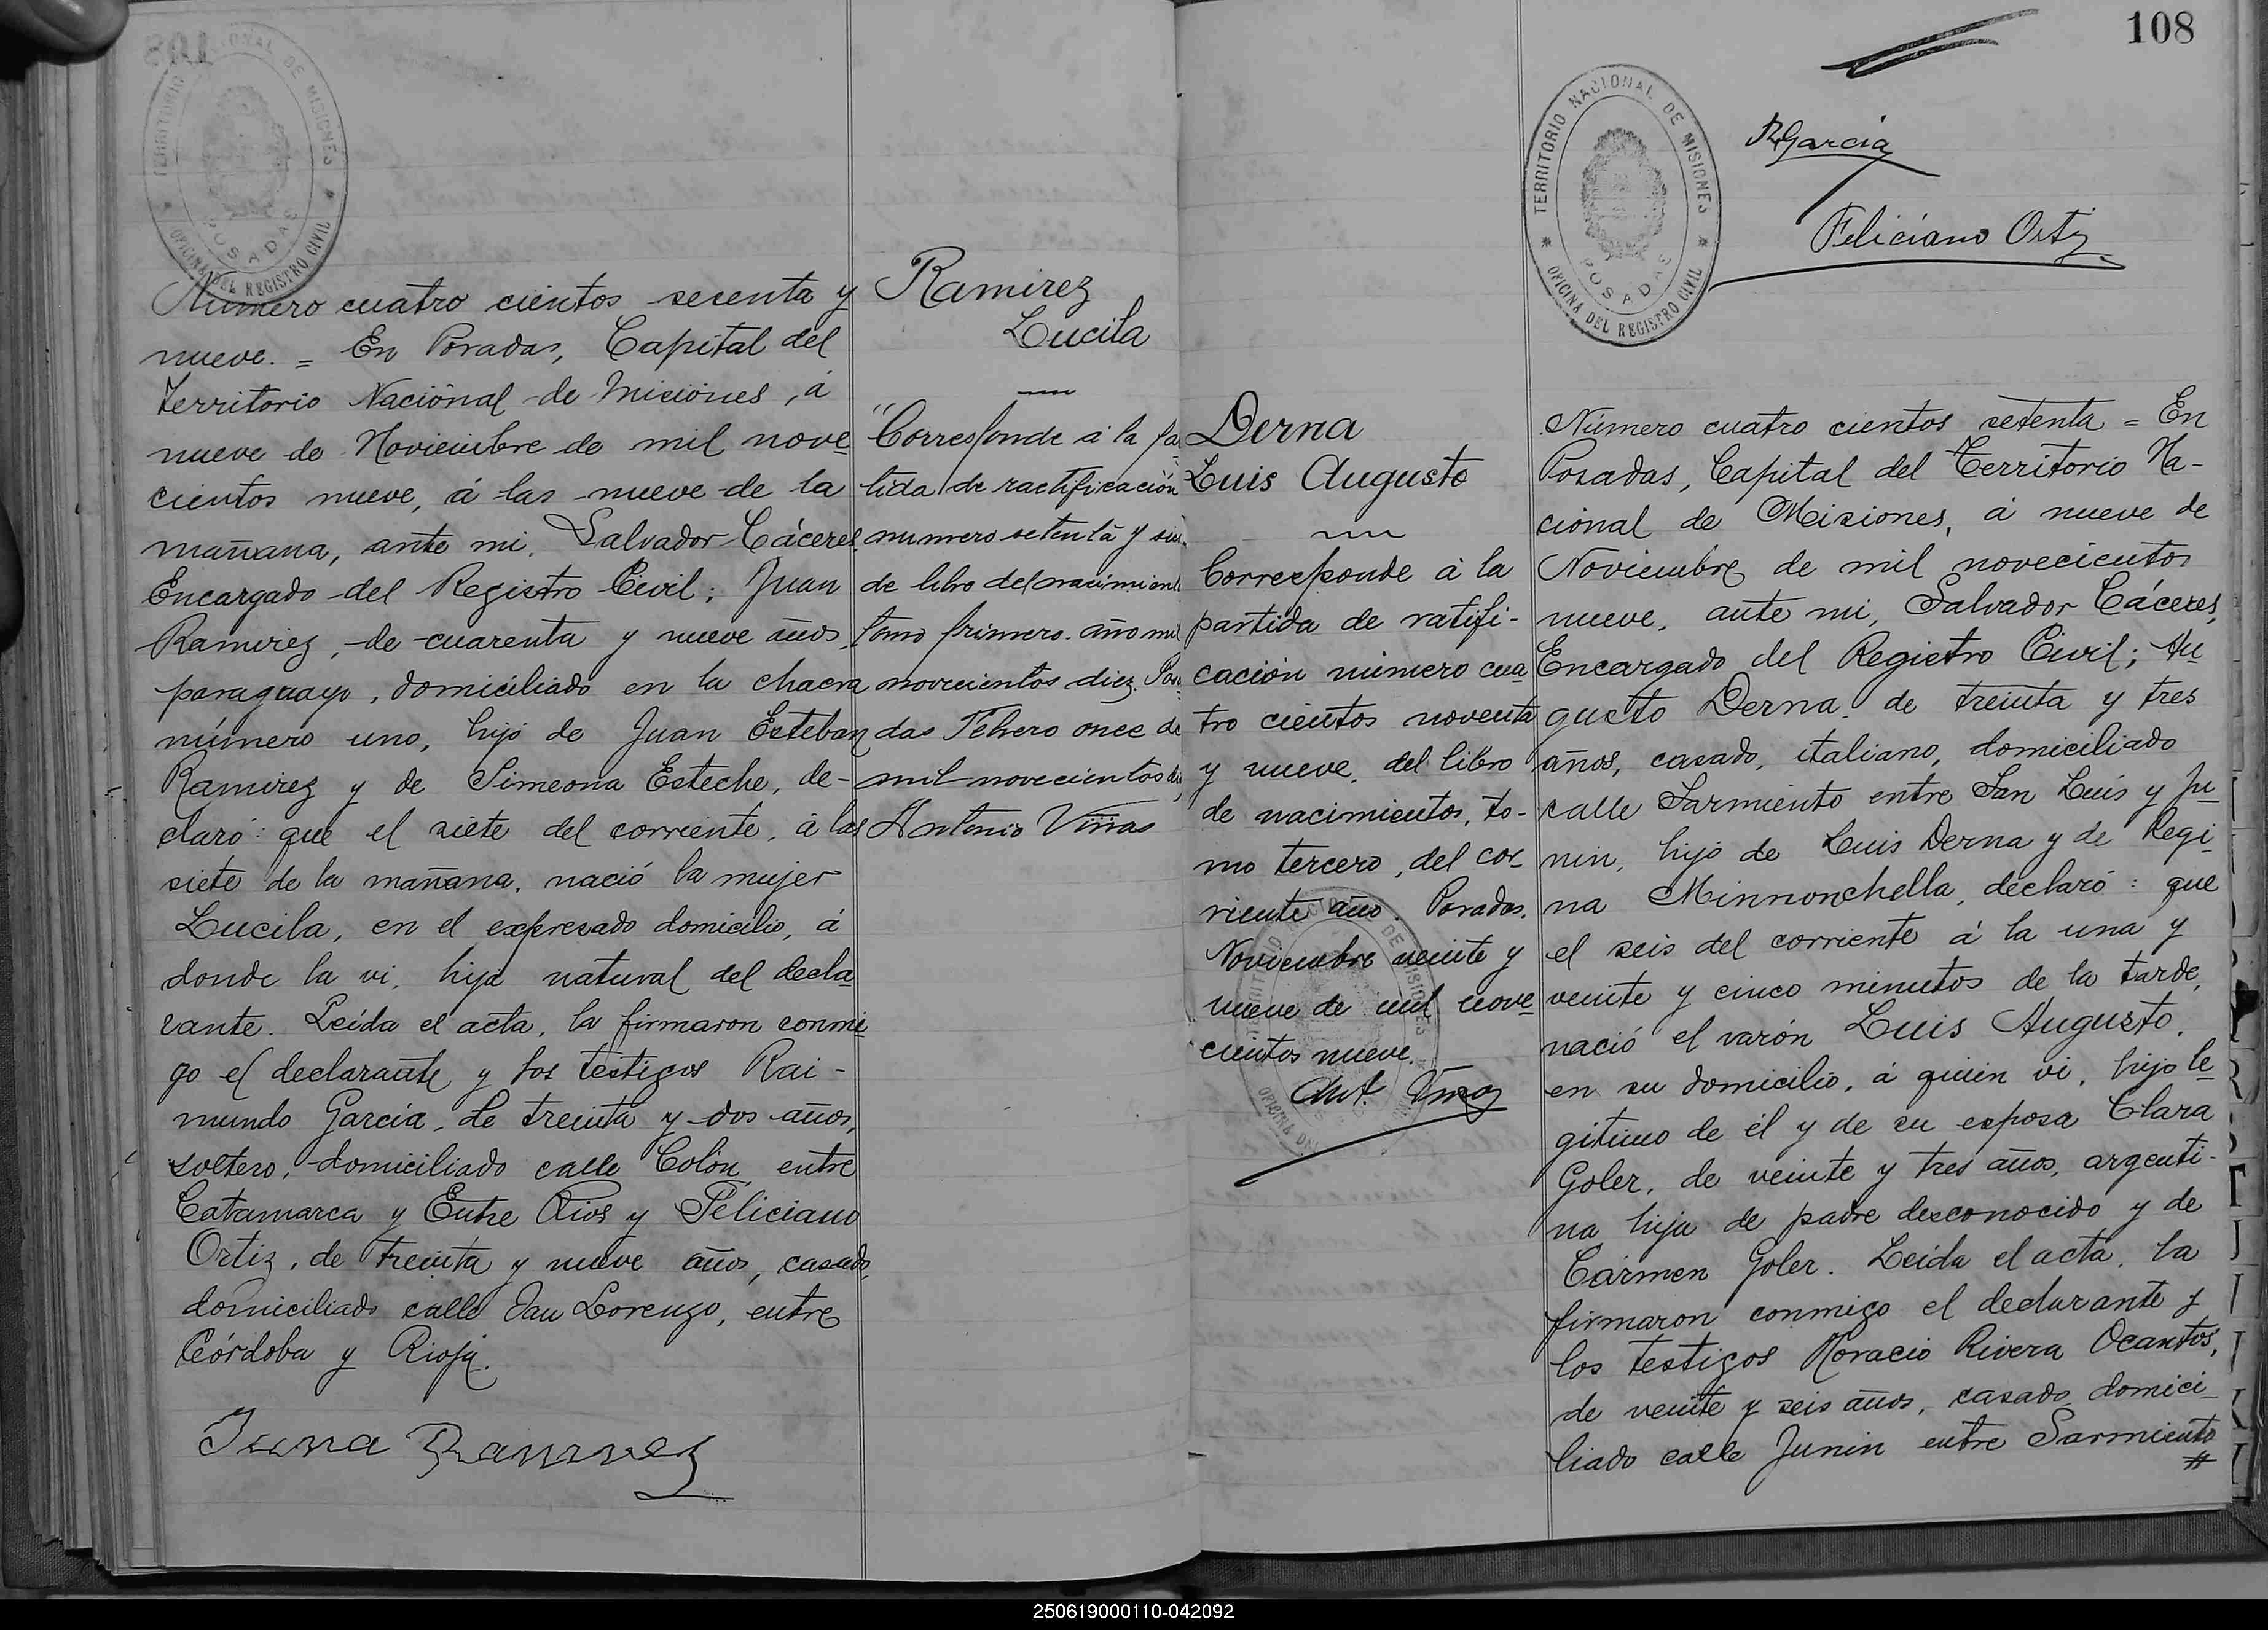 TERRITORIO NACIONAL DE MISIONES
POSADAS
OFICINA DEL REGISTRO CIVIL
Número cuatro cientos sesenta y
nueve. = En Posadas, Capital del
Territorio Nacional de Misiones, á
nueve de Noviembre de mil nove
cientos nueve, á las nueve de la
mañana, ante mi, Salvador Cáceres
Encargado del Registro Civil; Juan
Ramirez, de cuarenta y nueve años,
paraguayo, domiciliado en la chacra
número uno, hijo de Juan Esteban
Ramirez y de Simeona Esteche, de-
claró: que el siete del corriente, á las
siete de la mañana, nació la mujer
Lucila, en el expresado domicilio, á
donde la vi, hija natural del decla
rante. Leida el acta, la firmaron conmi
go el declarante y los testigos Rai-
mundo Garcia, de treinta y dos años,
soltero, domiciliado calle Colón entre
Catamarca y Entre Rios y Feliciano
Ortiz, de treinta y nueve años, casado,
domiciliado calle San Lorenzo, entre
Córdoba y Rioja.
Ramirez
Ramirez
Lucila
"Corresponde á la pa
tida de ractificación
numero setenta y
de libro del nacimient
tomo primero. año mil
novecientos diez. Posa
das Febrero once de
mil novecientos
Antonio Viñas
108
RGarcia
Feliciano Ortiz
TERRITORIO NACIONAL DE MISIONES
POSADAS
OFICINA DEL REGISTRO CIVIL
Derna
Luis Augusto
Corresponde á la
partida de ratifi-
cación número cua
tro cientos noventa
y nueve, del libro
de nacimientos, to-
mo tercero, del cor-
riente año. Posadas.
Noviembre veinte y
nueve de mil nove
cientos nueve.
Ant.
Número cuatro cientos setenta = En
Posadas, Capital del Territorio Na-
cional de Misiones, á nueve de
Noviembre de mil novecientos
nueve, ante mi, Salvador Cáceres,
Encargado del Registro Civil; Au
gusto Derna, de treinta y tres
años, casado, italiano, domiciliado
calle Sarmiento entre San Luis y Ju
nin, hijo de Luis Derna y de Regi
na Minnonchella, declaró: que
el seis del corriente á la una y
veinte y cinco minutos de la tarde,
nació el varón Luis Augusto,
en su domicilio, á quien vi, hijo le
gitimo de él y de su esposa Clara
Goler, de veinte y tres años, argenti-
na hija de padre desconocido y de
Cármen Goler. Leida el acta, la
firmaron conmigo el declarante y
los testigos Horacio Rivera Ocantos,
de veinte y seis años, casado, domici
liado calle Junin entre Sarmiento
#
250619000110-042092